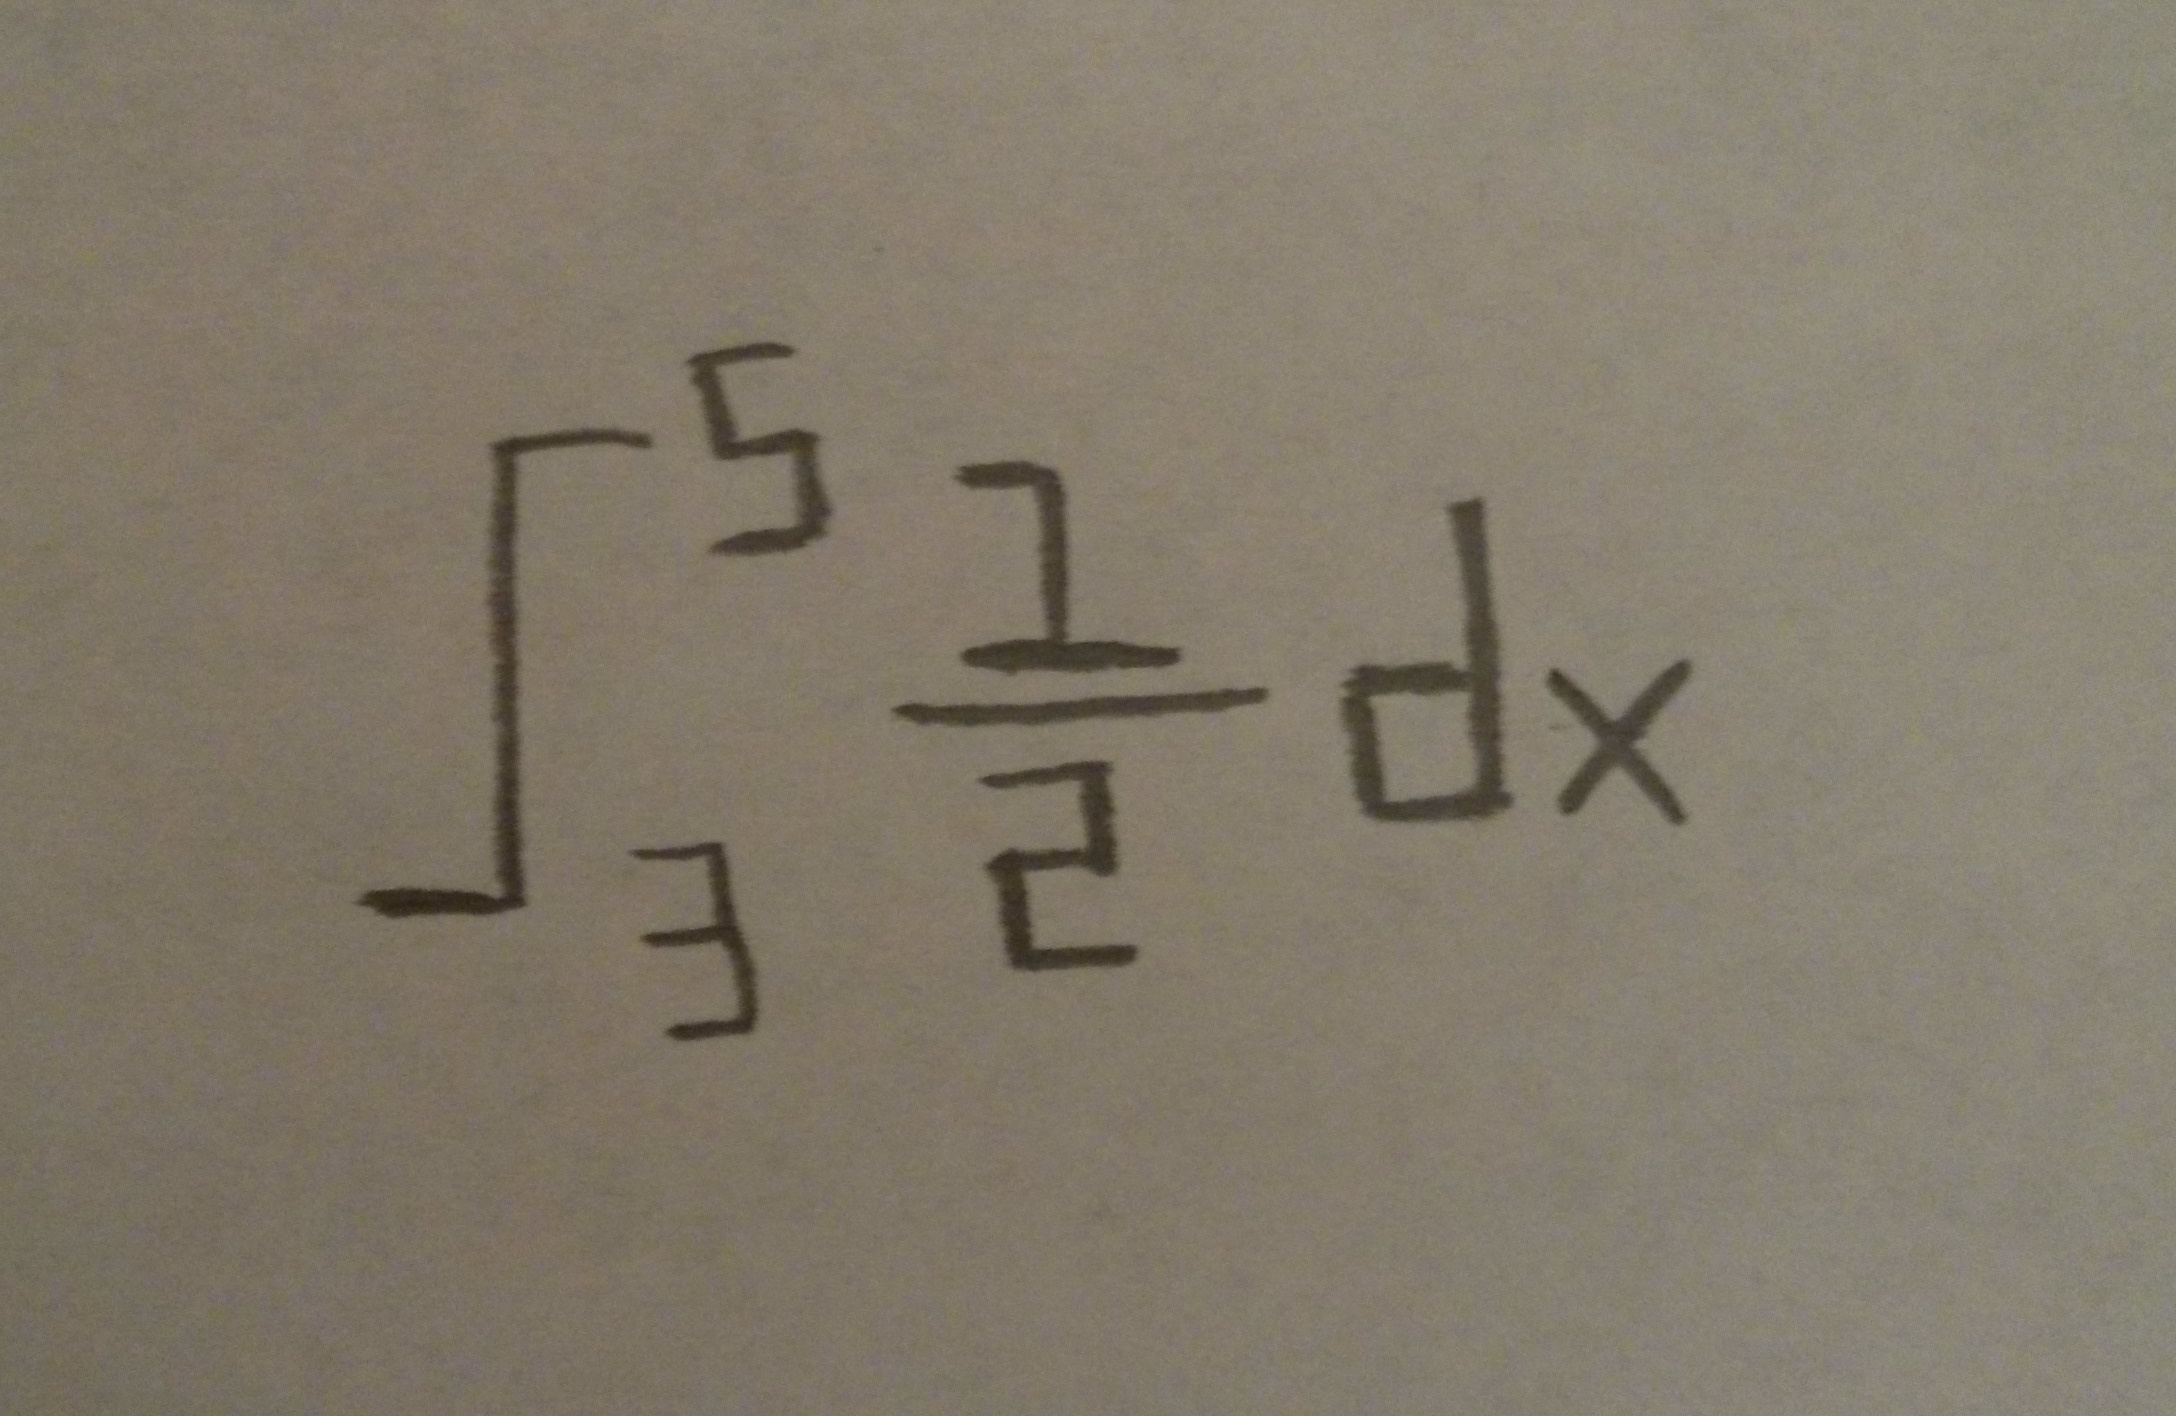 ∫₃⁵ 1/2 dx